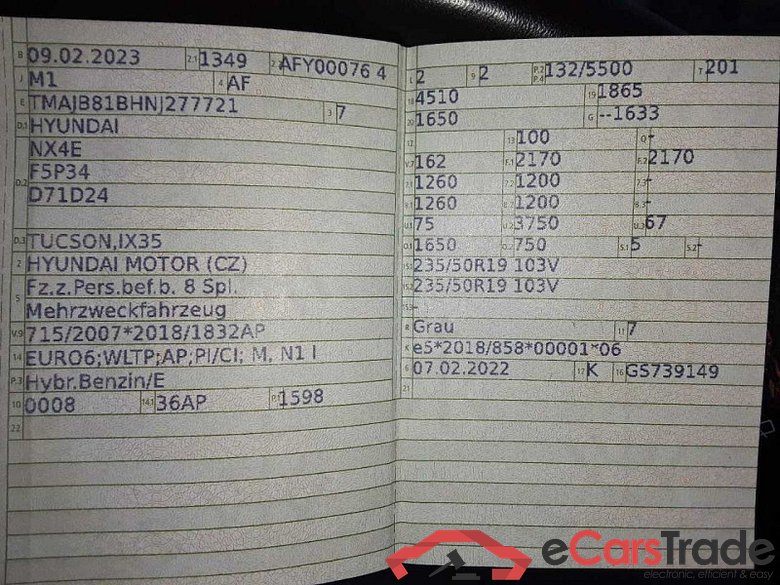 B 09.02.2023 2.1 1349 2 AFY00076 4
J M1 4 AF
E TMAJB81BHNJ277721 3 7
D.1 HYUNDAI
NX4E
D.2 F5P34
D71D24
D.3 TUCSON,IX35
2 HYUNDAI MOTOR (CZ)
5 Fz.z.Pers.bef.b. 8 Spl.
Mehrzweckfahrzeug
V.9 715/2007*2018/1832AP
14 EURO6;WLTP;AP;PI/CI; M, N1 I
P.3 Hybr.Benzin/E
10 0008 14.1 36AP P.1 1598
22
L 2 9 2 P.2 P.4 132/5500 T 201
18 4510 19 1865
20 1650 G --1633
12 13 100 Q -
V.7 162 F.1 2170 F.2 2170
7.1 1260 7.2 1200 7.3 -
8.1 1260 8.2 1200 8.3 -
U.1 75 U.2 3750 U.3 67
O.1 1650 O.2 750 S.1 5 S.2 -
15.1 235/50R19 103V
15.2 235/50R19 103V
15.3 -
R Grau 11 7
K e5*2018/858*00001*06
6 07.02.2022 17 K 16 GS739149
21
eCarsTrade
electronic, efficient & easy